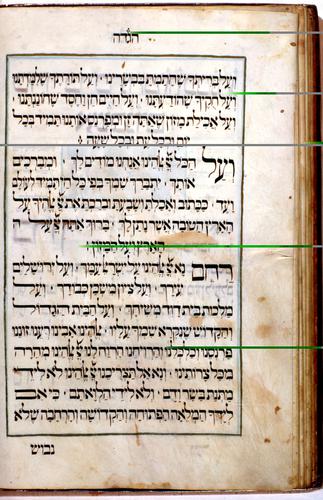 הגדה
ועל בריתך שחתמת בבשרינו ׳ ועל תורתך שלמדתנו
ועל חקיך שהודעתנו ׳ ועל חיים חן וחסד שחוננתנו ׳
ועל אכילת מזון שאתה זן ומפרנס אותנו תמיד בכל
יום ובכל עת ובכל שעה :
ועל הכל אנחנו מודים לך ׳ ומברכים
אותך ׳ יתברך שמך בפי כל חי תמיד לעולם
ועד ׳ ככתוב ואכלת ושבעת וברכת את על
הארץ הטובה אשר נתן לך ׳ ברוך אתה על
הארץ ועל המזון :
רחם נא על ישראל עמך ׳ ועל ירושלים
עירך ׳ ועל ציון משכן כבודיך ׳ ועל
מלכות בית דוד משיחך ׳ ועל הבית הגדול
והקדוש שנקרא שמך עליו ׳ אבינו רענו זוננו
פרנסנו וכלכלנו והרויחנו והרוח לנו מהרה
מכל צרותינו ׳ ונא אל תצריכנו לא לידי
מתנת בשר ודם ׳ ולא לידי הלואתם ׳ כי אם
לידך המלאה הפתוחה והקדושה והרחבה שלא
נבוש